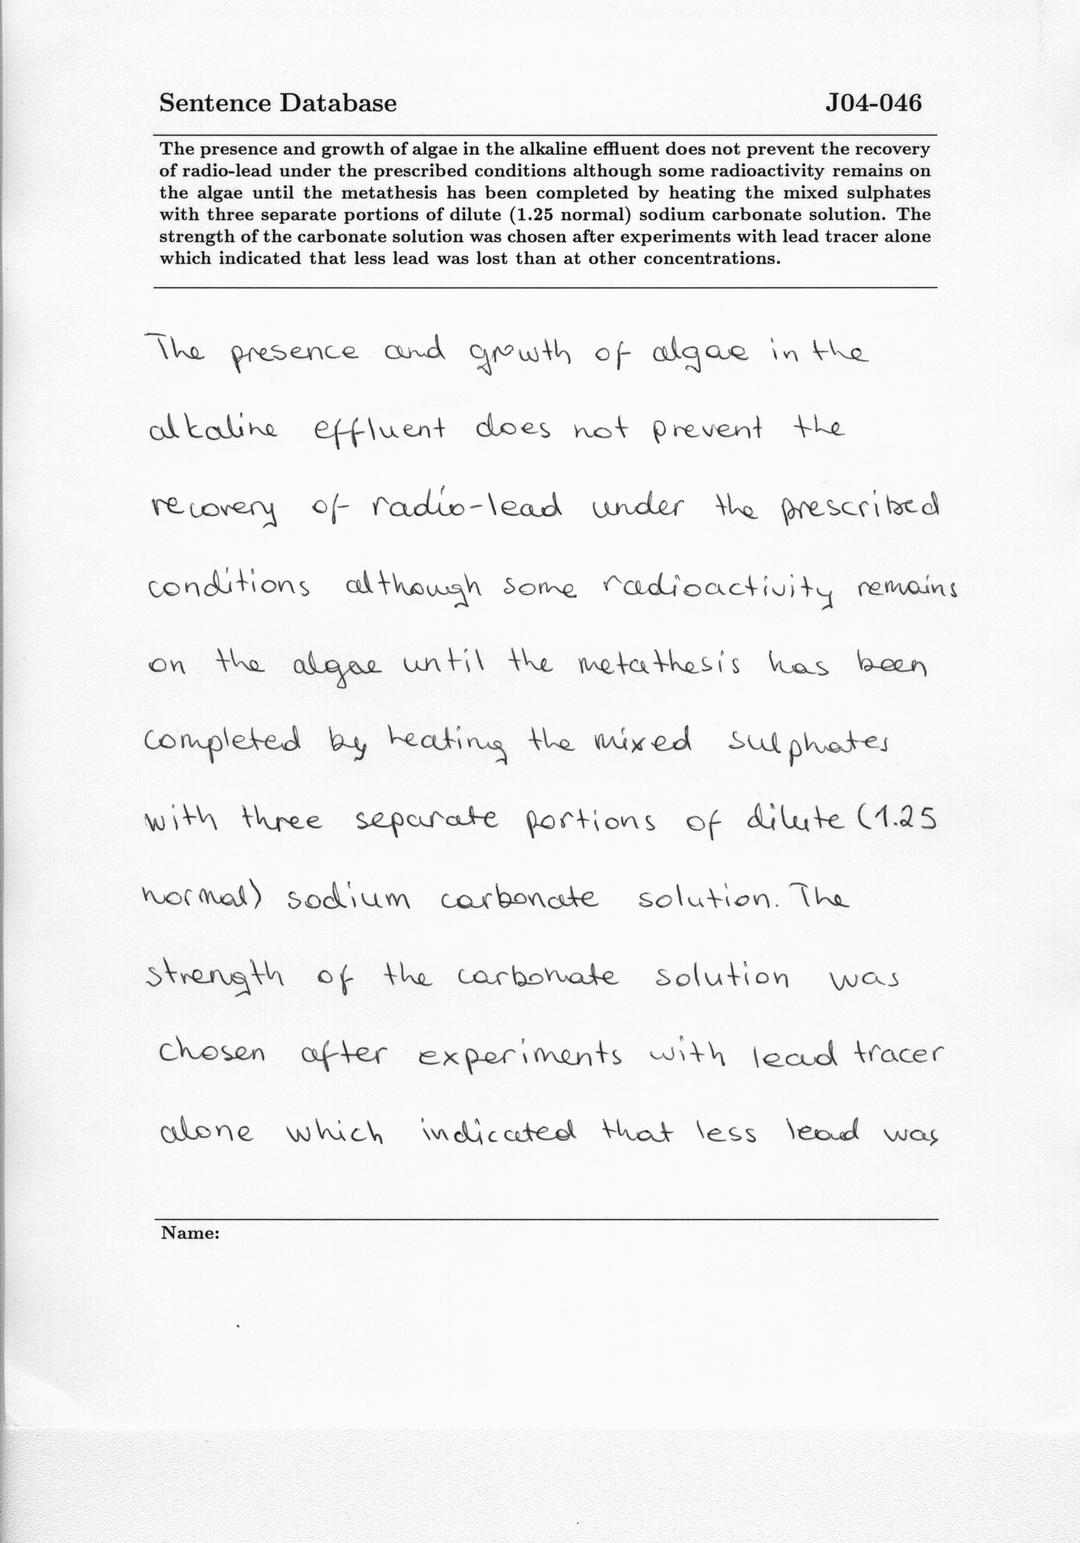 Sentence Database J04-046
The presence and growth of algae in the alkaline effluent does not prevent the recovery
of radio-lead under the prescribed conditions although some radioactivity remains on
the algae until the metathesis has been completed by heating the mixed sulphates
with three separate portions of dilute (1.25 normal) sodium carbonate solution. The
strength of the carbonate solution was chosen after experiments with lead tracer alone
which indicated that less lead was lost than at other concentrations.
The presence and growth of algae in the
alkaline effluent does not prevent the
recovery of radio-lead under the prescribed
conditions although some radioactivity remains
on the algae until the metathesis has been
completed by heating the mixed sulphates
with three separate portions of dilute (1.25
normal) sodium carbonate solution. The
strength of the carbonate solution was
chosen after experiments with lead tracer
alone which indicated that less lead was
Name: